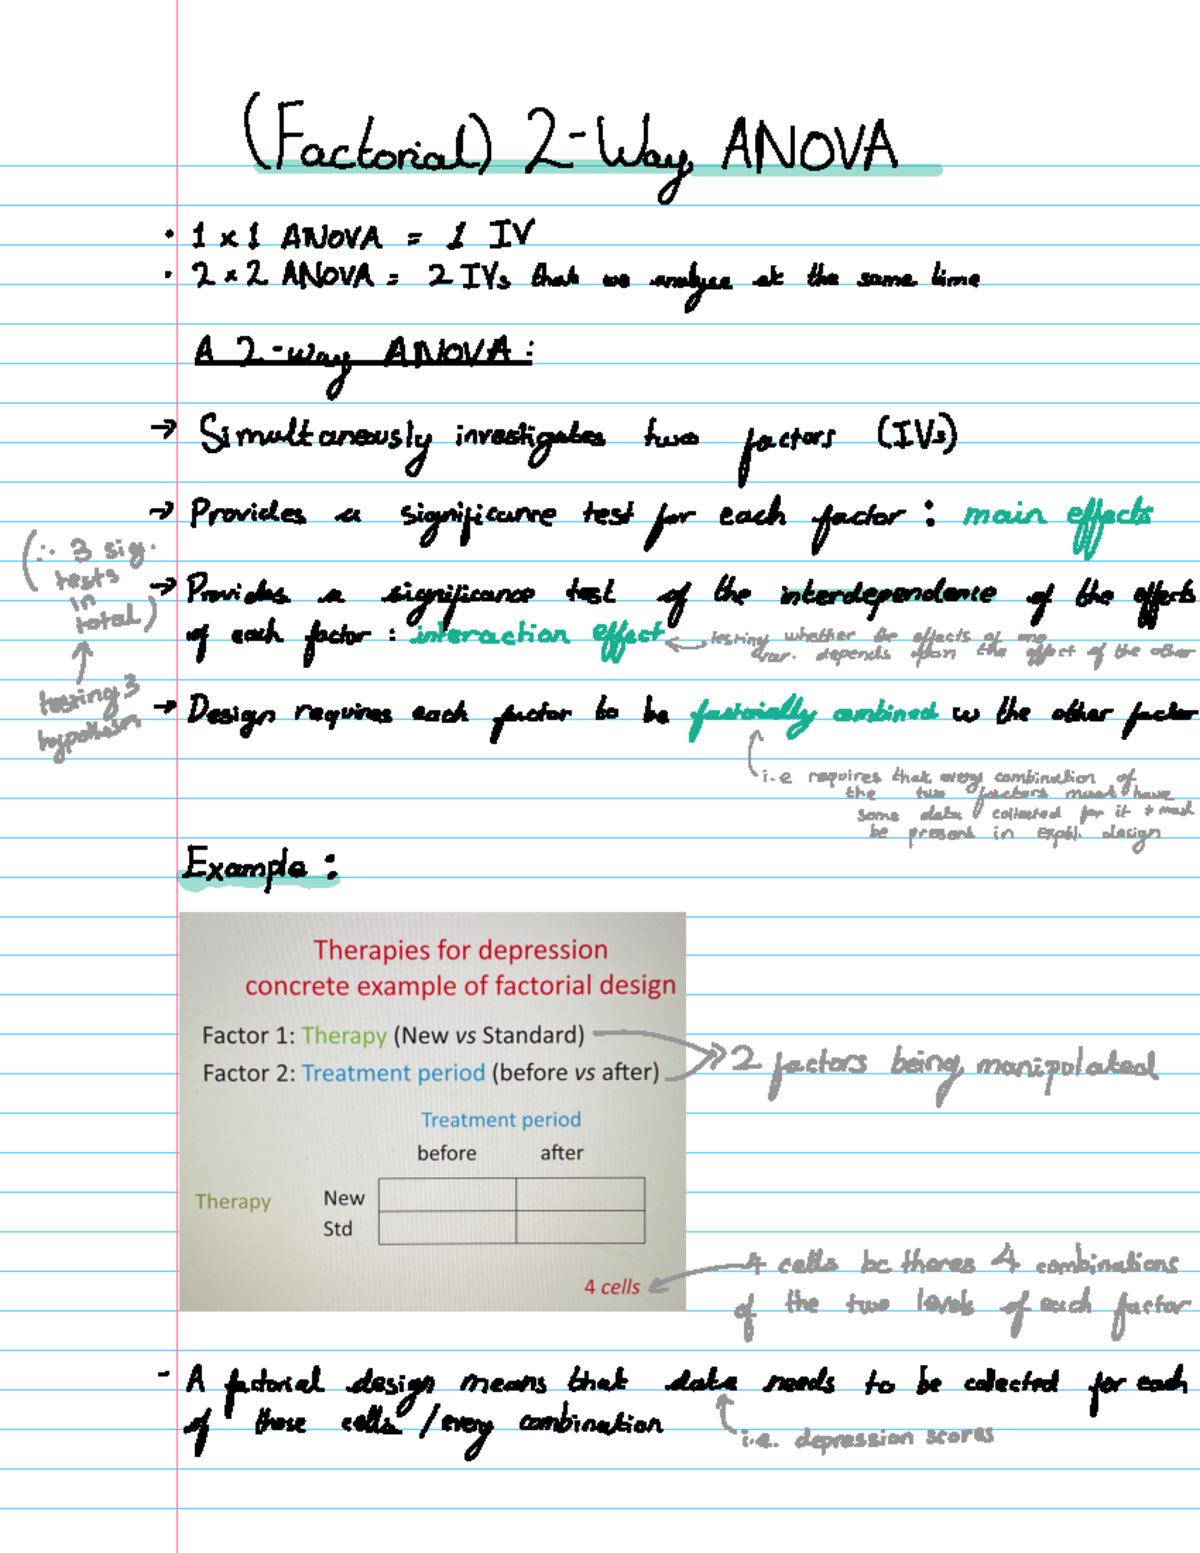 (Factorial) 2-Way ANOVA
• 1 x 1 ANOVA = 1 IV
• 2 x 2 ANOVA = 2 IVs that we analyse at the same time
A 2-way ANOVA:
→ Simultaneously investigates two factors (IVs)
→ Provides a significance test for each factor : main effects
(∴ 3 sig.
tests
in
total)
testing 3
hypothesis
→ Provides a significance test of the interdependence of the effects
of each factor : interaction effect
testing whether the effects of one
var. depends upon the effect of the other
→ Design requires each factor to be factorially combined w the other factor
i.e requires that every combination of
the two factors must have
some data collected for it + must
be present in exptl. design
Example :
Therapies for depression
concrete example of factorial design
Factor 1: Therapy (New vs Standard)
Factor 2: Treatment period (before vs after)
2 factors being manipulated
Treatment period
before after
Therapy New
Std
4 cells
4 cells bc theres 4 combinations
of the two levels of each factor
- A factorial design means that data needs to be collected for each
of those cells / every combination
i.e. depression scores